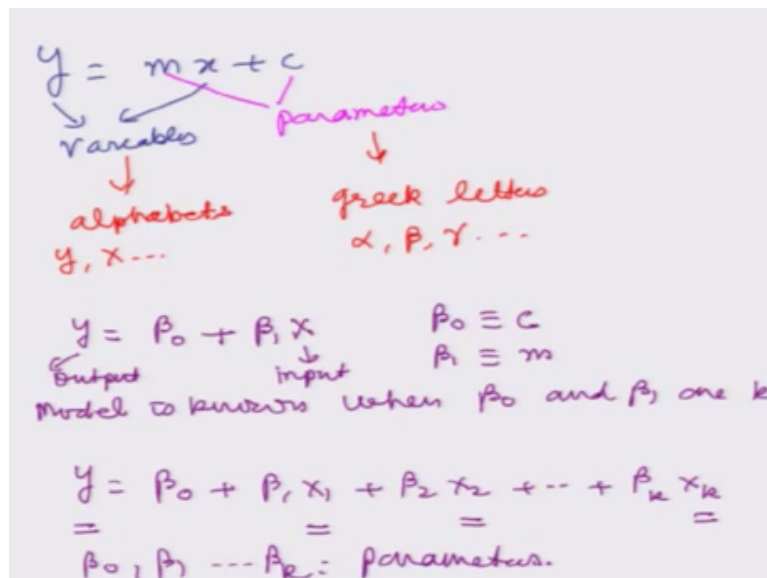 y = mx + c
variables parameters
alphabets greek letters
y, x... α, β, γ....
y = β₀ + β₁ x β₀ ≡ c
output input β₁ ≡ m
Model is known when β₀ and β₁ are k
y = β₀ + β₁ x₁ + β₂ x₂ + ... + βₖ xₖ
β₀, β₁ ... βₖ : parameters.